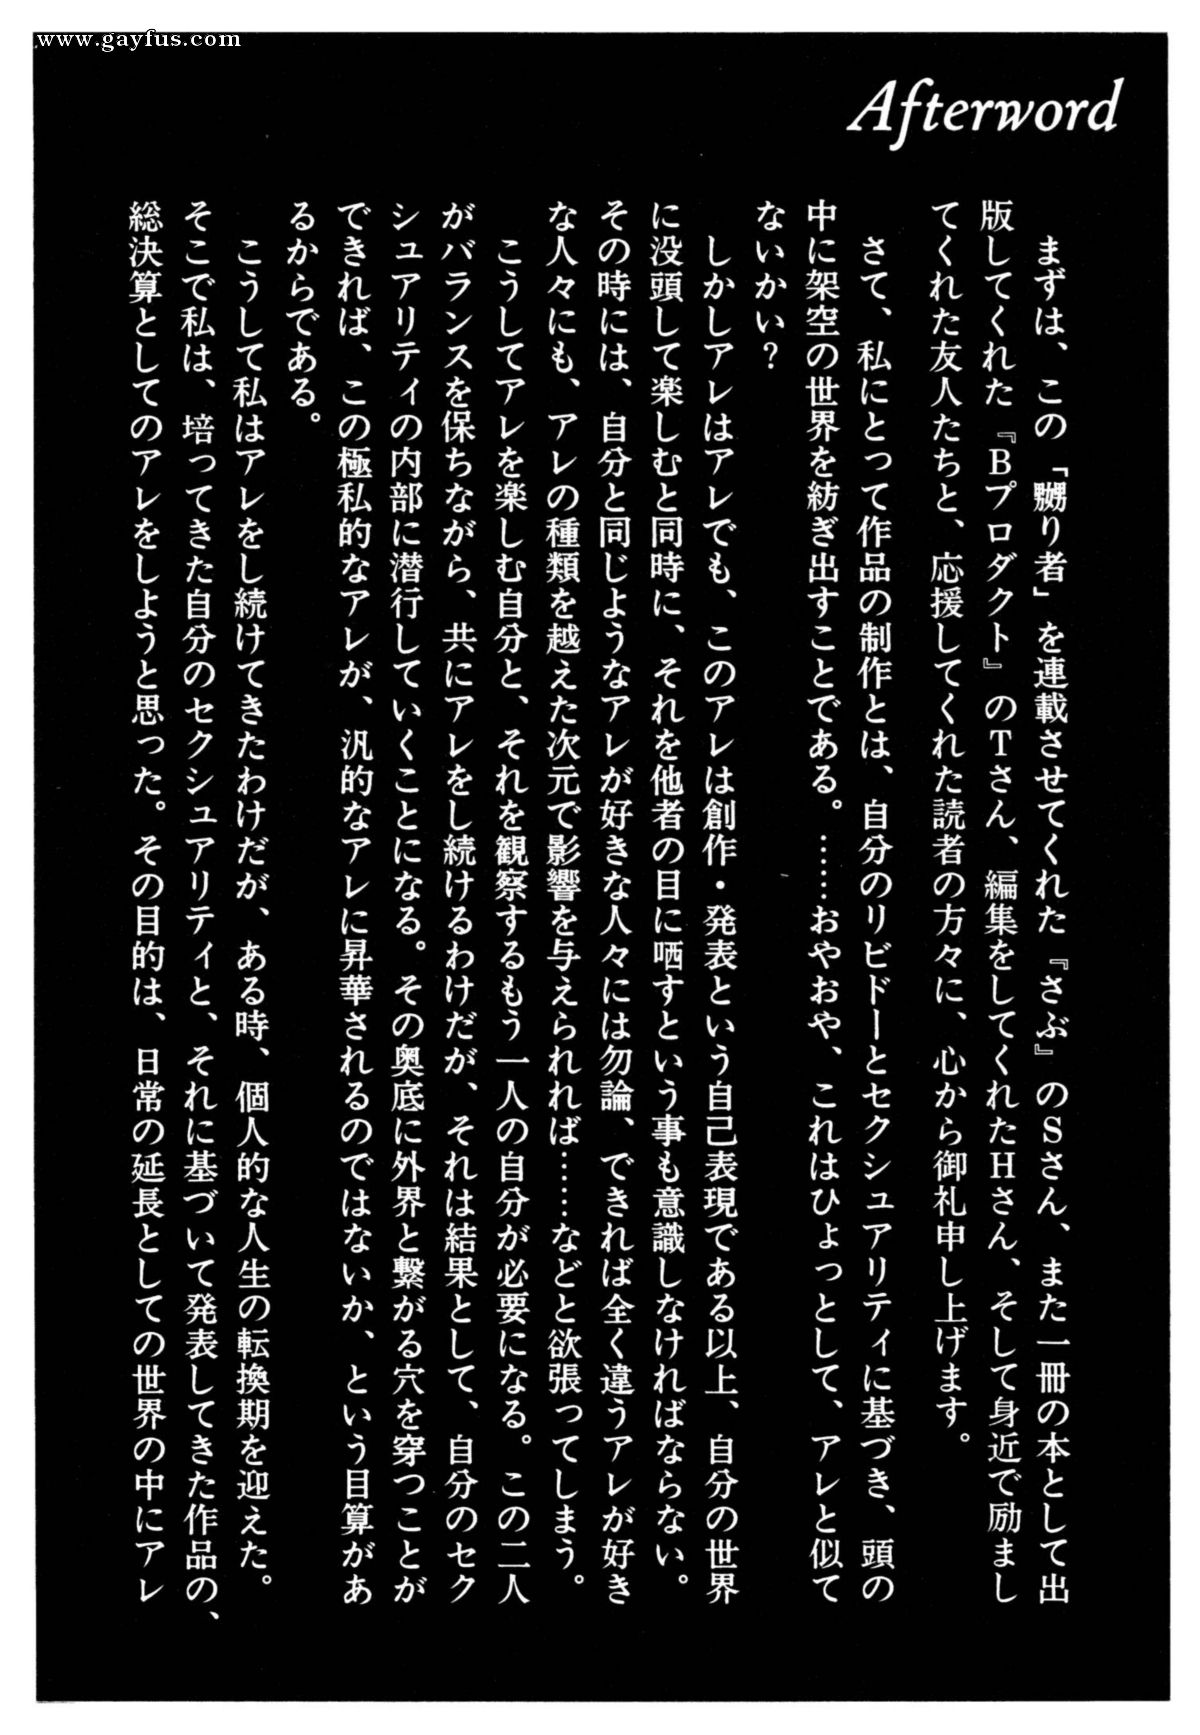 www.gayfus.com
Afterword
まずは、この「嬲り者」を連載させてくれた『さぶ』のSさん、また一冊の本として出
版してくれた『Bプロダクト』のTさん、編集をしてくれたHさん、そして身近で励まし
てくれた友人たちと、応援してくれた読者の方々に、心から御礼申し上げます。
さて、私にとって作品の制作とは、自分のリビドーとセクシュアリティに基づき、頭の
中に架空の世界を紡ぎ出すことである。……おやおや、これはひょっとして、アレと似て
ないかい？
しかしアレはアレでも、このアレは創作・発表という自己表現である以上、自分の世界
に没頭して楽しむと同時に、それを他者の目に晒すという事も意識しなければならない。
その時には、自分と同じようなアレが好きな人々には勿論、できれば全く違うアレが好き
な人々にも、アレの種類を越えた次元で影響を与えられれば……などと欲張ってしまう。
こうしてアレを楽しむ自分と、それを観察するもう一人の自分が必要になる。この二人
がバランスを保ちながら、共にアレをし続けるわけだが、それは結果として、自分のセク
シュアリティの内部に潜行していくことになる。その奥底に外界と繋がる穴を穿つことが
できれば、この極私的なアレが、汎的なアレに昇華されるのではないか、という目算があ
るからである。
こうして私はアレをし続けてきたわけだが、ある時、個人的な人生の転換期を迎えた。
そこで私は、培ってきた自分のセクシュアリティと、それに基づいて発表してきた作品の、
総決算としてのアレをしようと思った。その目的は、日常の延長としての世界の中にアレ